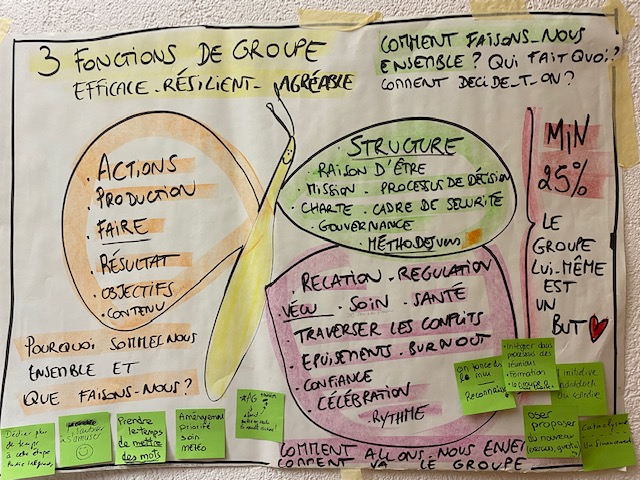 3 FONCTIONS DE GROUPE
EFFICACE - RÉSILIENT - AGRÉABLE
COMMENT FAISONS-NOUS
ENSEMBLE ? QUI FAIT QUOI ?
COMMENT DECIDE-T-ON ?
. ACTIONS
. PRODUCTION
. FAIRE
. RÉSULTAT
. OBJECTIFS
. CONTENU
POURQUOI SOMMES-NOUS
ENSEMBLE ET
QUE FAISONS-NOUS ?
. STRUCTURE
. RAISON D'ÊTRE
. MISSION - PROCESSUS DE DÉCISION
CHARTE - CADRE DE SÉCURITÉ
. GOUVERNANCE
. MÉTHODES
. RELATION - REGULATION
VÉCU . SOIN - SANTÉ
. TRAVERSER LES CONFLITS
. EPUISEMENTS - BURNOUT
. CONFIANCE
. CÉLÉBRATION
. RYTHME
COMMENT ALLONS-NOUS
COMMENT VA LE GROUPE
MIN
25%
LE
GROUPE
LUI-MÊME
EST
UN
BUT
Dédier plus
de temps
à cette étape
s'amuser
Prendre
le temps
de mettre
des mots
Aménagement
priorité
soin
météo
Intégrer dans
processus des
réunions
. Formation
initiative
oser
proposer
du nouveau